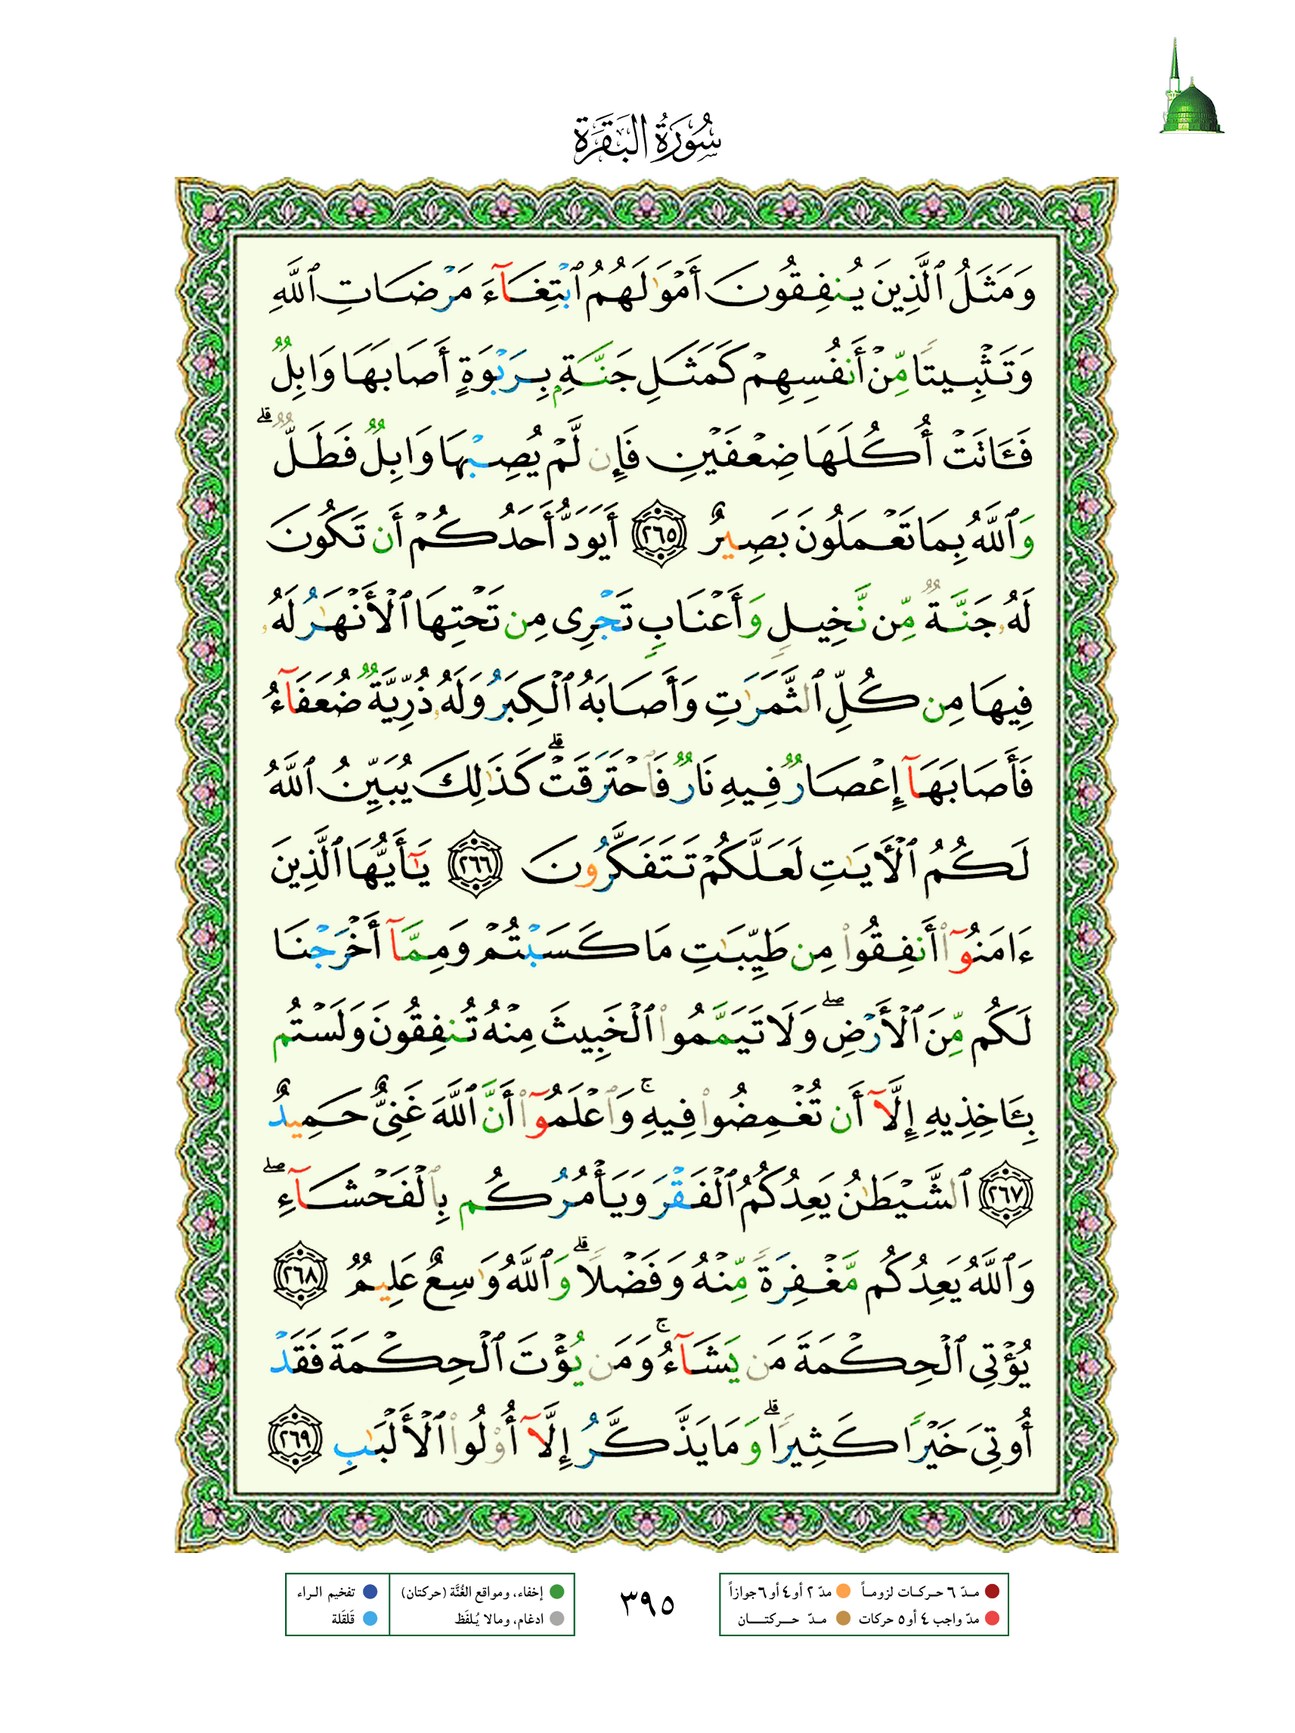 سُورَةُ البَقَرَة
وَمَثَلُ ٱلَّذِينَ يُنفِقُونَ أَمۡوَٰلَهُمُ ٱبۡتِغَآءَ مَرۡضَاتِ ٱللَّهِ
وَتَثۡبِيتٗا مِّنۡ أَنفُسِهِمۡ كَمَثَلِ جَنَّةِۭ بِرَبۡوَةٍ أَصَابَهَا وَابِلٞ
فَـَٔاتَتۡ أُكُلَهَا ضِعۡفَيۡنِ فَإِن لَّمۡ يُصِبۡهَا وَابِلٞ فَطَلّٞۗ
وَٱللَّهُ بِمَا تَعۡمَلُونَ بَصِيرٌ ٢٦٥ أَيَوَدُّ أَحَدُكُمۡ أَن تَكُونَ
لَهُۥ جَنَّةٞ مِّن نَّخِيلٖ وَأَعۡنَابٖ تَجۡرِي مِن تَحۡتِهَا ٱلۡأَنۡهَٰرُ لَهُۥ
فِيهَا مِن كُلِّ ٱلثَّمَرَٰتِ وَأَصَابَهُ ٱلۡكِبَرُ وَلَهُۥ ذُرِّيَّةٞ ضُعَفَآءُ
فَأَصَابَهَآ إِعۡصَارٞ فِيهِ نَارٞ فَٱحۡتَرَقَتۡۗ كَذَٰلِكَ يُبَيِّنُ ٱللَّهُ
لَكُمُ ٱلۡأٓيَٰتِ لَعَلَّكُمۡ تَتَفَكَّرُونَ ٢٦٦ يَٰٓأَيُّهَا ٱلَّذِينَ
ءَامَنُوٓاْ أَنفِقُواْ مِن طَيِّبَٰتِ مَا كَسَبۡتُمۡ وَمِمَّآ أَخۡرَجۡنَا
لَكُم مِّنَ ٱلۡأَرۡضِۖ وَلَا تَيَمَّمُواْ ٱلۡخَبِيثَ مِنۡهُ تُنفِقُونَ وَلَسۡتُم
بِـَٔاخِذِيهِ إِلَّآ أَن تُغۡمِضُواْ فِيهِۚ وَٱعۡلَمُوٓاْ أَنَّ ٱللَّهَ غَنِيٌّ حَمِيدٌ
٢٦٧ ٱلشَّيۡطَٰنُ يَعِدُكُمُ ٱلۡفَقۡرَ وَيَأۡمُرُكُم بِٱلۡفَحۡشَآءِۖ
وَٱللَّهُ يَعِدُكُم مَّغۡفِرَةٗ مِّنۡهُ وَفَضۡلٗاۗ وَٱللَّهُ وَٰسِعٌ عَلِيمٞ ٢٦٨
يُؤۡتِي ٱلۡحِكۡمَةَ مَن يَشَآءُۚ وَمَن يُؤۡتَ ٱلۡحِكۡمَةَ فَقَدۡ
أُوتِيَ خَيۡرٗا كَثِيرٗاۗ وَمَا يَذَّكَّرُ إِلَّآ أُوْلُواْ ٱلۡأَلۡبَٰبِ ٢٦٩
مـدّ ٦ حركات لزومـاً مدّ ٢ أو ٤ أو ٦ جوازاً
مدّ واجب ٤ أو ٥ حركات مـدّ حركتان
٣٩٥
إخفاء، ومواقع الغُنَّة (حركتان) تفخيم الراء
ادغام، ومالا يُلفَظ قلقلة